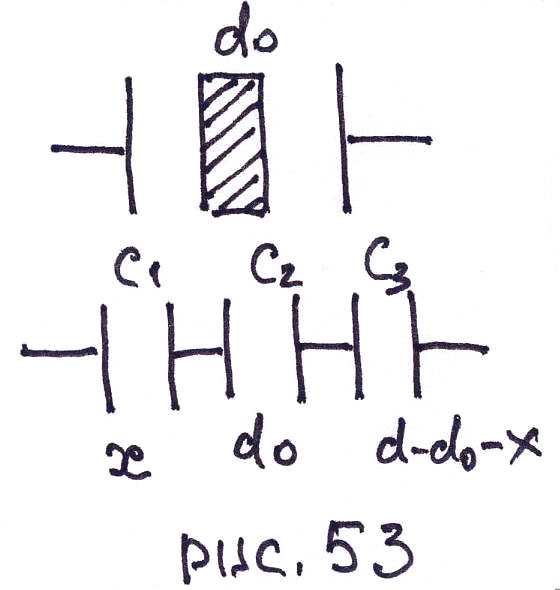 do
C₁ C₂ C₃
x do d-d₀-x
рис. 53